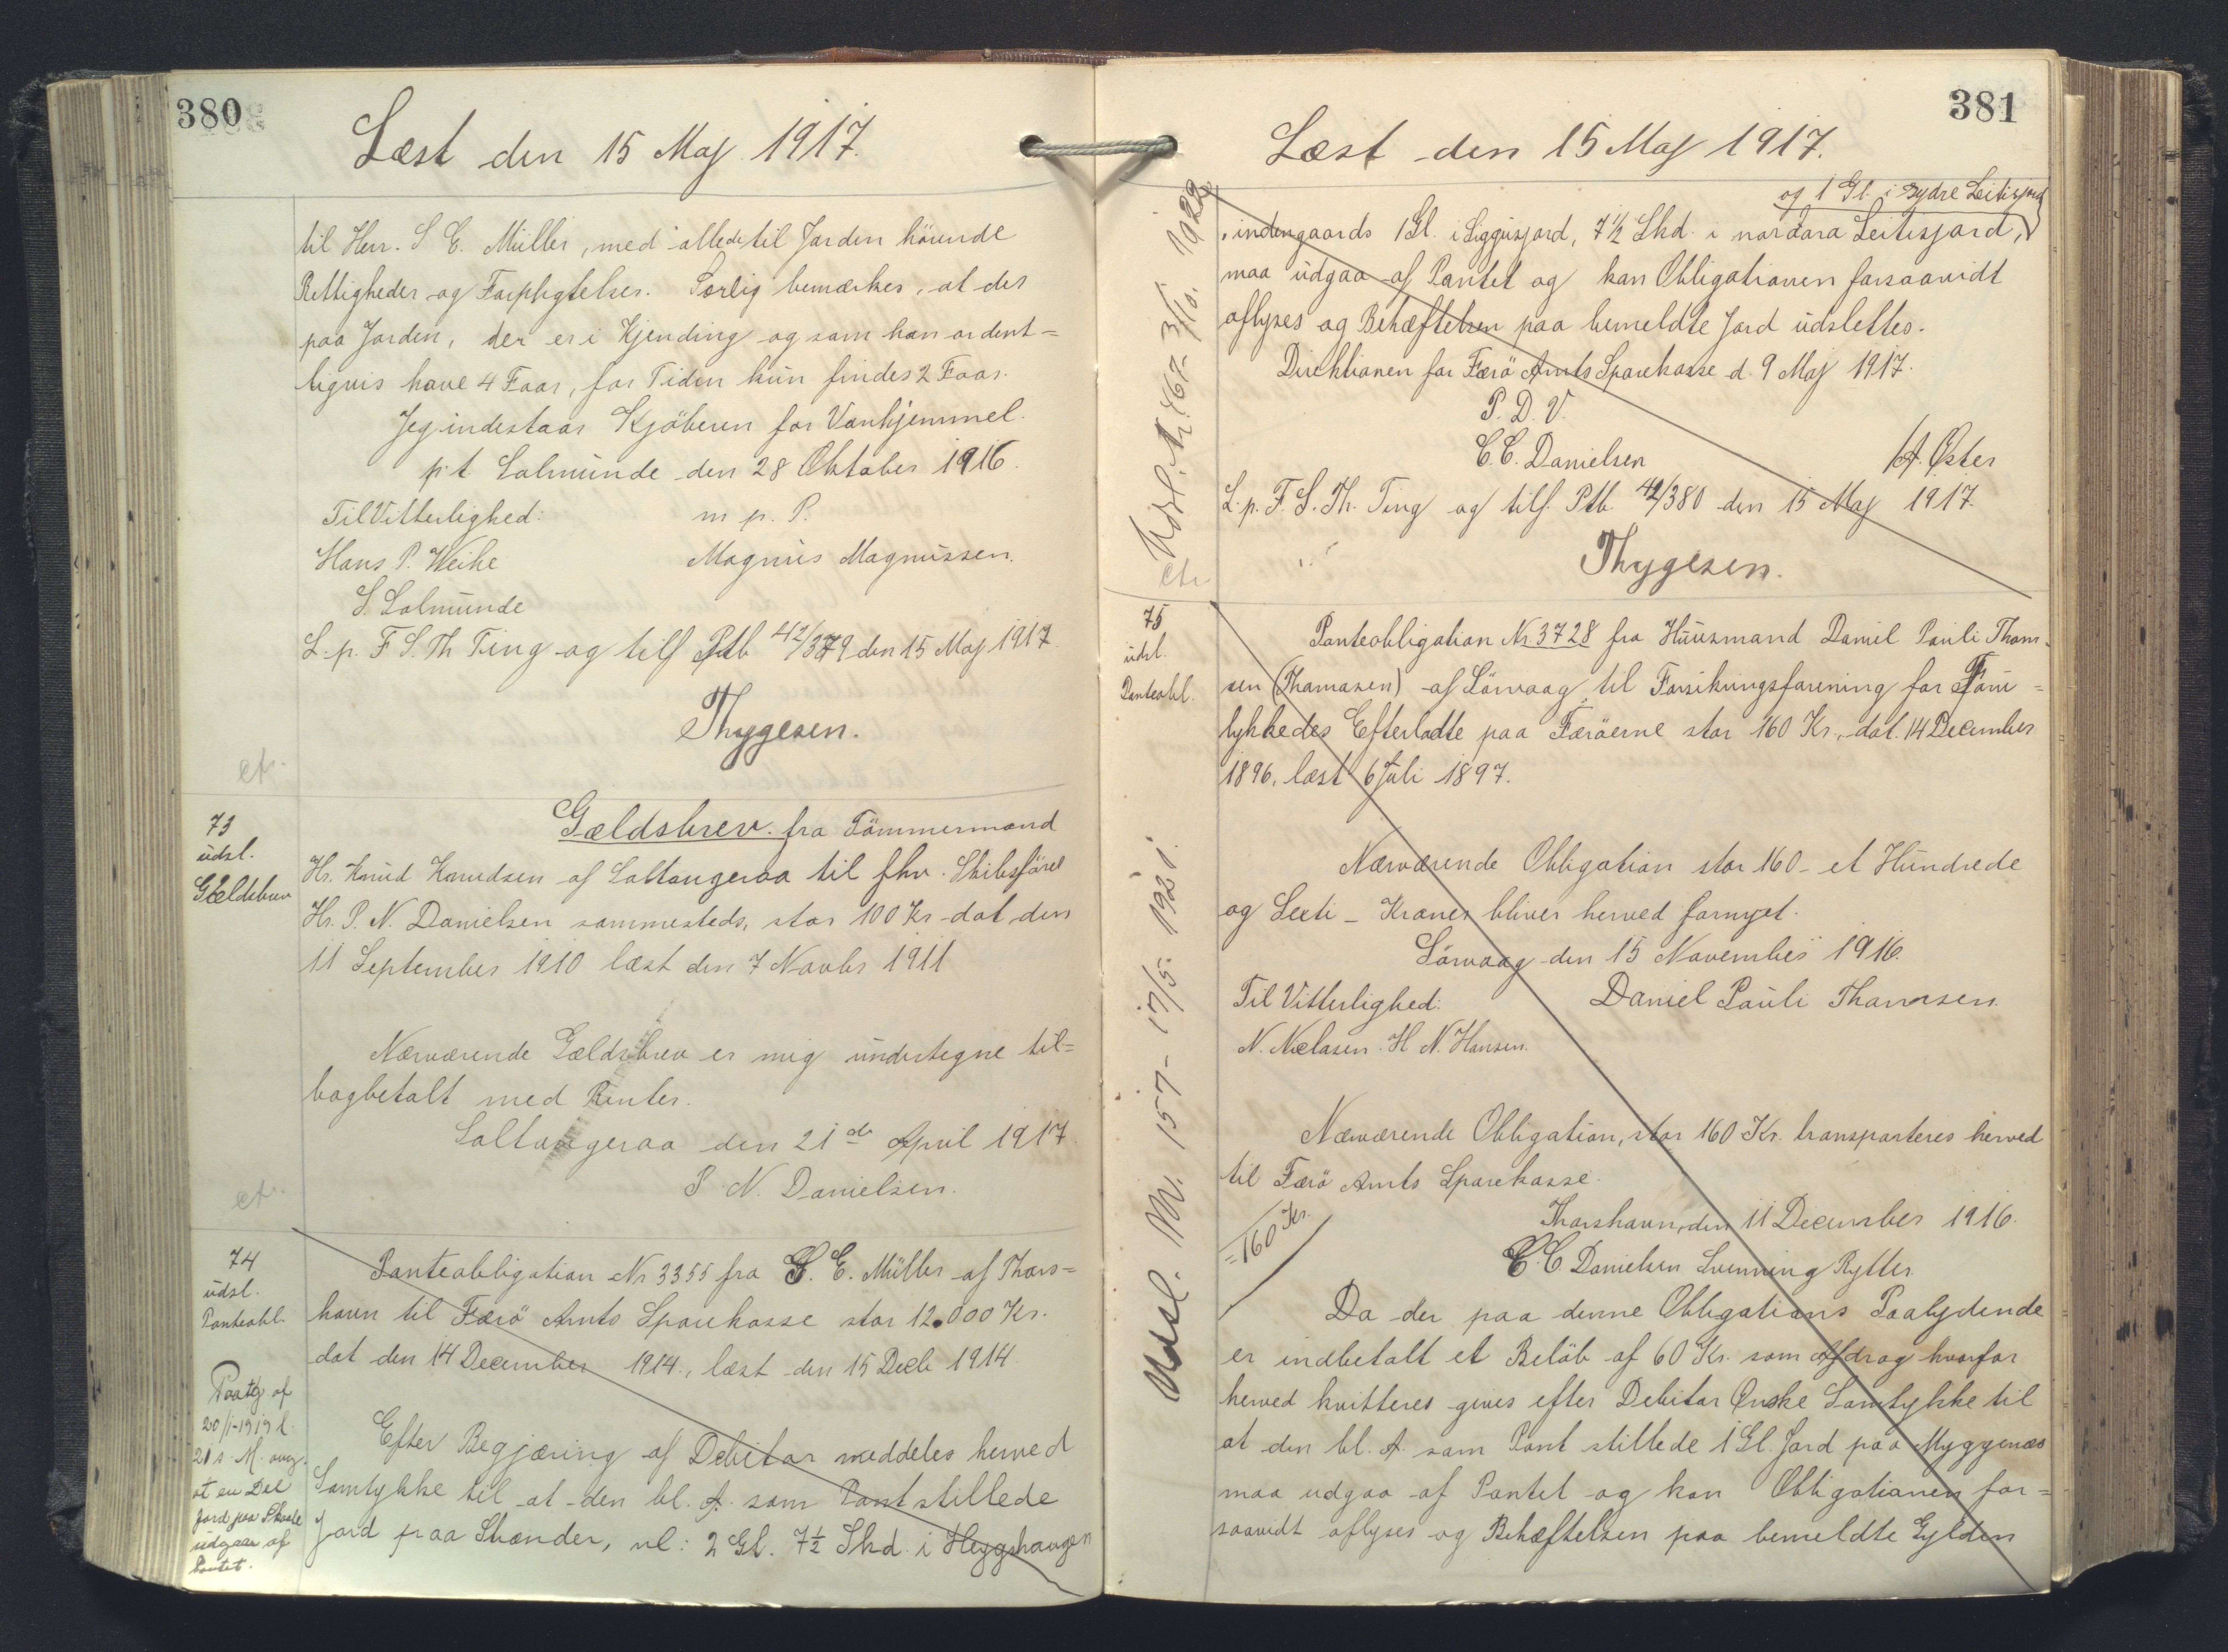 380
Læst den 15 Maj 1917.
til Herr. S E. Müller, med allede til Jorden hörende
Rettigheder og Forpligtelser. Særlig bemærkes, at der
paa Jorden, der er i Kjending og som kan ordent=
ligvis have 4 Faar, for Tiden kun findes 2 Faar.
Jeg indestaar Kjöberen for Vanhjemmel.
p. t. Solmunde den 28 Oktober 1916.
Til Vitterlighed: m. p. P.
Hans P. Weihe Magnus Magnussen.
S. Solmunde
L. p. F. S. Th Ting og tilf Ptb 42/379 den 15 Maj 1917.
Thygesen.
ctr.
73
udsl.
Gældsbrev
Gældsbrev fra Tömmermand
Hr. Knud Knudsen af Saltangeraa til fhv. Skibsförer
Hr. P. N. Danielsen sammesteds, stor 100 Kr dat den
11 September 1910 læst den 7 Novbr 1911
Nærværende Gældsbrev er mig undertegne til=
bagbetalt med Renter.
Saltangeraa den 21de April 1917.
P. N. Danielsen.
ctr.
74
udsl.
Panteobl.
Panteobligation Nr 3355 fra S. E. Müller af Thors=
havn til Færö Amts Sparekasse stor 12.000 Kr.
dat den 14 December 1914., læst den 15 Decb 1914.
Paateg. af
20/1-1919 l.
21 s. M. ang.
at en Del
Jord paa Skaale
udgaar af
Pantet.
Efter Begjæring af Debitor meddeles herved
Samtykke til at den bl. A. som Pant stillede
Jord paa Skænder, nl: 2 Gl. 7½ Skd. i Heygshaugen
381
Læst den 15 Maj 1917.
og 1 Gl. i sydre Leitisjord
indengaards 1 Gl. i Liggjusjord, 7½ Skd. i nordara Leitisjord,
maa udgaa af Pantet og kan Obligationen forsaavidt
aflyses og Behæftelsen paa bemeldte Jord udslettes.
Direktionen for Færö Amts Sparekasse d. 9 Maj 1917.
P. D. V.
C. C. Danielsen /A. Øster
L. p. F. S. Th. Ting og tilf. Ptb. 42/380 den 15 Maj 1917.
Thygesen.
Udsl. Nr. 467- 3/10. 1922
ctr
75
udsl.
Panteobl.
Panteobligation Nr 3728 fra Huusmand Daniel Pauli Thom-
sen (Thomasen) af Sörvaag til Forsikringsforening for Foru=
lykkedes Efterladte paa Færöerne stor 160 Kr., dat. 14 December
1896, læst 6 Juli 1897.
Nærværende Obligation stor 160 - et Hundrede
og Sexti - Kroner bliver herved fornyet.
Sörvaag den 15 November 1916.
Til Vitterlighed: Daniel Pauli Thomasen.
N. Nielasen. H N. Hansen.
Nærværende Obligation, stor 160 Kr. transporteres herved
til Færö Amts Sparekasse.
Thorshavn, den 11 December 1916.
= 160 Kr.
C. C. Danielsen Svenning Rytter.
Da der paa denne Obligations Paalydende
er indbetalt et Belöb af 60 Kr. som Afdrag hvorfor
herved kvitteres gives efter Debitor Ønske Samtykke til
at den bl. A. som Pant stillede 1 Gl. Jord paa Myggenæs
maa udgaa af Pantet og kan Obligationen for=
saavidt aflyses og Behæftelsen paa bemeldte Gylden
Udsl. Nr. 157- 17/5- 1921.